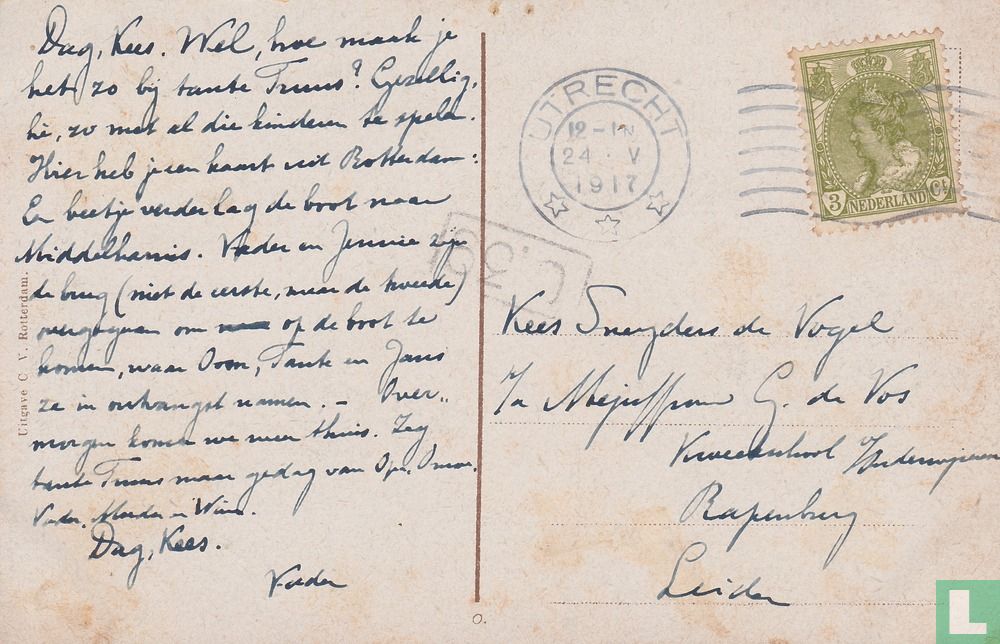 Dag, Kees. Wel, hoe maak je
het zo bij tante Truus? Gezellig,
hè, zo met al die kinderen te spelen.
Hier heb je een kaart uit Rotterdam:
Een beetje verder lag de boot naar
Middelharnis. Vader en Jennie zijn
de brug (niet de eerste, maar de tweede)
overgegaan om op de boot te
komen, waar Oom, Tante en Jans
ze in ontvangst namen. – Over-
morgen komen we weer thuis. Zeg
tante Truus maar gedag van Opa, Omoe,
Vader, Moeder en Wim.
Dag, Kees.
Vader
Uitgave C. V. Rotterdam.
UTRECHT
12-1N
24 . V
1917
3 NEDERLAND Ct
Kees Sneyders de Vogel
p/a Mejuffrouw G. de Vos
Kweekschool v/Onderwijzeressen
Rapenburg
Leiden
O.
L